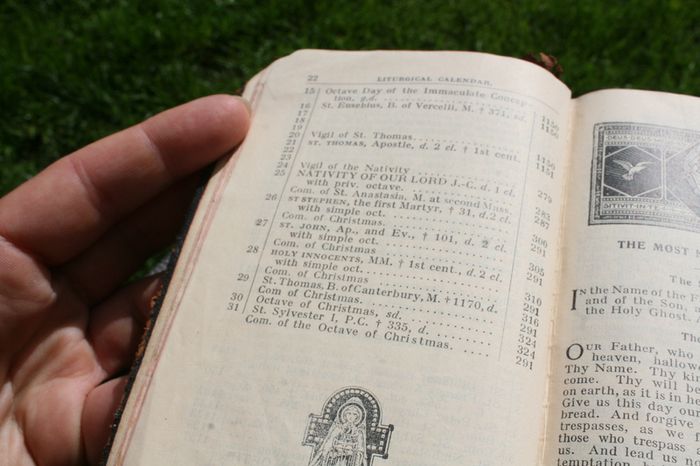 22
LITURGICAL CALENDAR.
15 Octave Day of the Immaculate Concep-
tion, g.d. 1150
16 St. Eusebius, B. of Vercelli, M. † 371, sd. 1156
17
18
19
20 Vigil of St. Thomas 1150
21 ST. THOMAS, Apostle, d. 2 cl. † 1st cent. 1151
22
23
24 Vigil of the Nativity
25 NATIVITY OF OUR LORD J.-C. d. 1 cl.
with priv. octave. 279
Com. of St. Anastasia, M. at second Mass. 283
26 ST STEPHEN, the first Martyr, † 31, d. 2 cl.
with simple oct. 287
Com. of Christmas 291
27 ST. JOHN, Ap., and Ev., † 101, d. 2 cl.
with simple oct. 300
Com. of Christmas 291
28 HOLY INNOCENTS, MM. † 1st cent., d. 2 cl.
with simple oct. 305
Com. of Christmas 291
29 St. Thomas, B. of Canterbury, M. † 1170, d. 310
Com of Christmas. 291
30 Octave of Christmas, sd. 316
31 St. Sylvester I, P.C. † 335, d. 324
Com. of the Octave of Christmas. 291
SITIVIT IN TE
THE MOST
In the Name of the
and of the Son, a
the Holy Ghost.
OUR Father, who
heaven, hallow
Thy Name. Thy
come. Thy will be
on earth, as it is in he
Give us this day our
bread. And forgive
trespasses, as we f
those who trespass
us. And lead us no
temptation